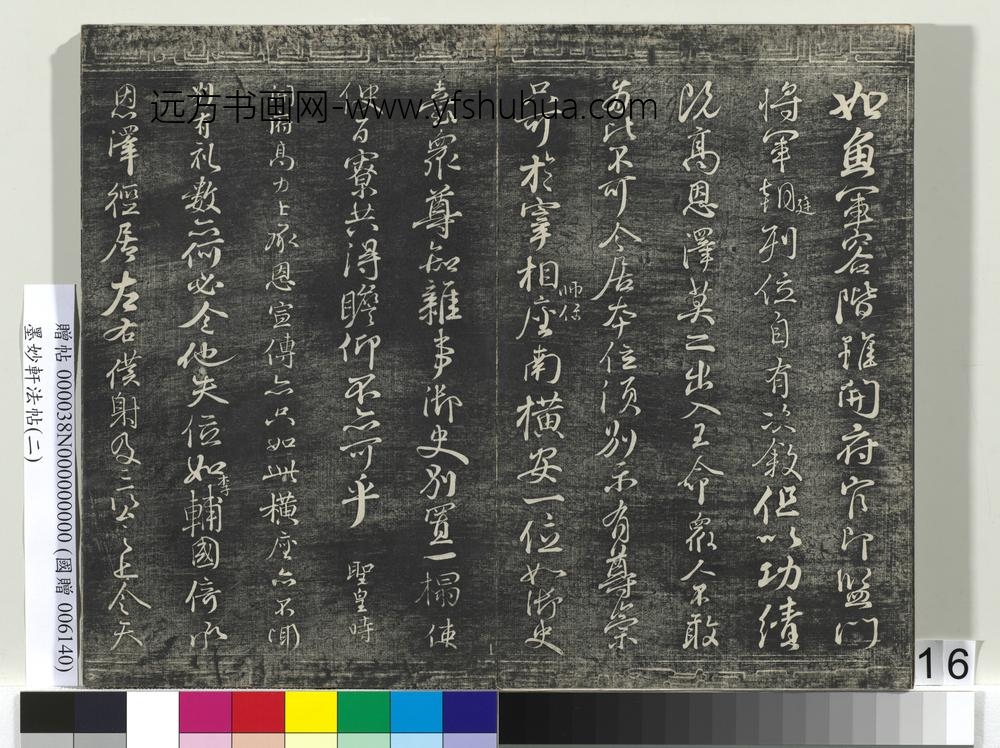 如魚軍容階雖開府官即監門
將軍朝廷列位自有次敘但以功績
既高恩澤莫二出入王命眾人不敢
為比不可令居本位須別示有尊崇
只可於宰相師保座南橫安一位如御史
臺眾尊知雜事御史別置一榻使
使百寮共得瞻仰不亦可乎聖皇時
開府高力士承恩宣傳亦只如此橫座亦不聞
別有禮數亦何必令他失位如李輔國倚承
恩澤徑居左右僕射及三公之上令天
贈帖 000038N000000000 (國贈 006140)
墨妙軒法帖(二)
16
远方书画网-www.yfshuhua.com